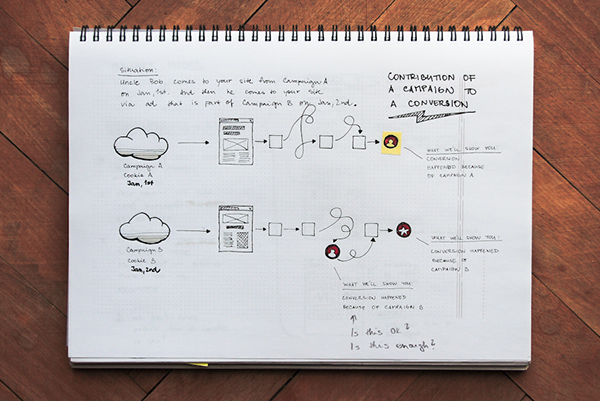 Situation:
Uncle Bob comes to your site from Campaign A
on Jan, 1st. And then he comes to your site
via ad that is part of Campaign B on Jan, 2nd.
CONTRIBUTION OF
A CAMPAIGN TO
A CONVERSION
Campaign A
Cookie A
Jan, 1st
WHAT WE'LL SHOW YOU:
CONVERSION
HAPPENED BECAUSE
OF CAMPAIGN A
Campaign B
Cookie B
Jan, 2nd
WHAT WE'LL SHOW YOU:
CONVERSION HAPPENED
BECAUSE OF
CAMPAIGN B
WHAT WE'LL SHOW YOU:
CONVERSION HAPPENED
BECAUSE OF CAMPAIGN B
Is this OK?
Is this enough?